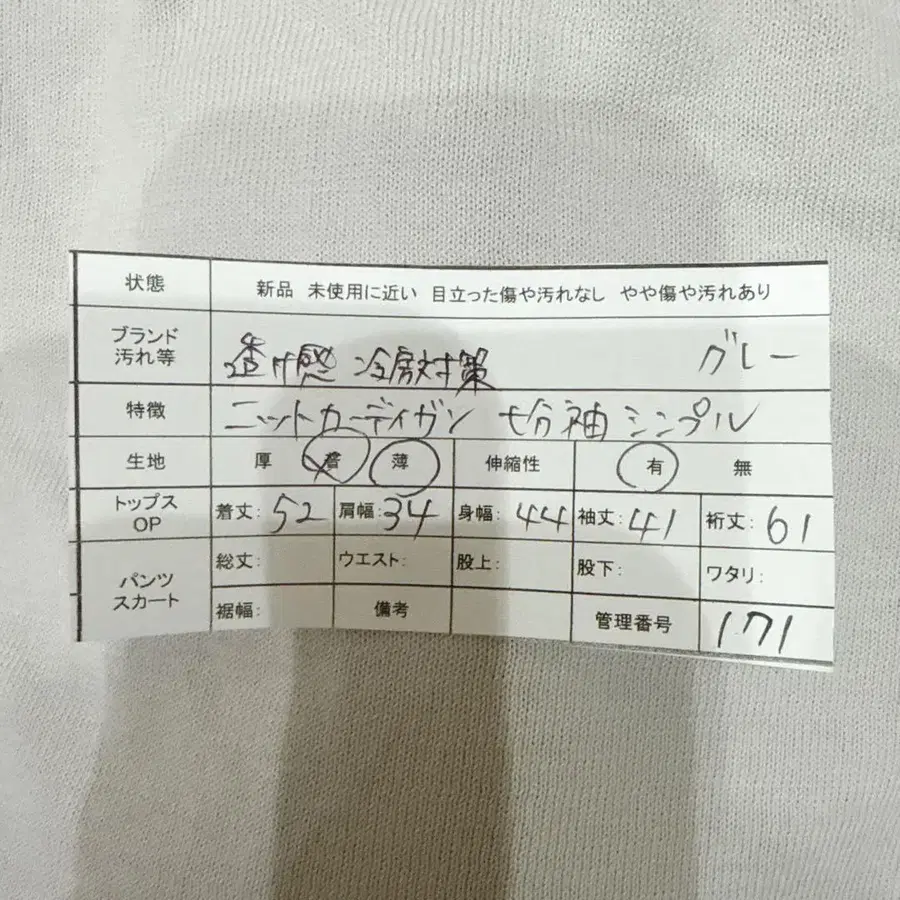 状態 新品 未使用に近い 目立った傷や汚れなし やや傷や汚れあり
ブランド 汚れ等 透け感 冷房対策 グレー
特徴 ニットカーディガン 七分袖 シンプル
生地 厚 普 薄 伸縮性 有 無
トップス OP 着丈: 52 肩幅: 34 身幅: 44 袖丈: 41 裄丈: 61
パンツ スカート 総丈: ウエスト: 股上: 股下: ワタリ:
裾幅: 備考 管理番号 171